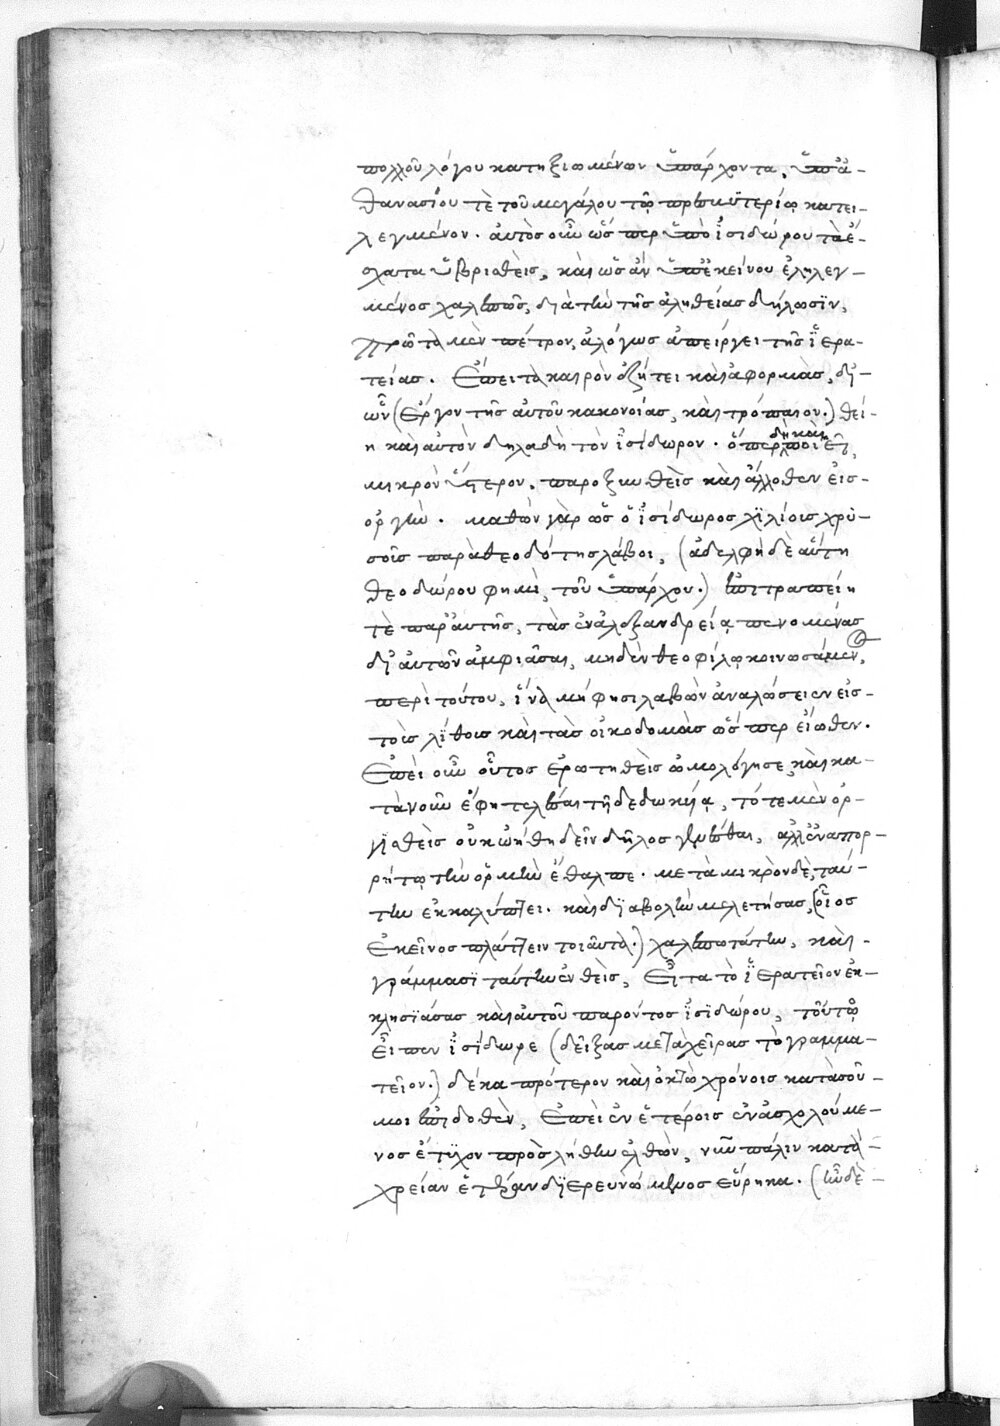 πολλοῦ λόγου κατηξιωμένων ὑπάρχοντα, ὑπὸ ἀ-
θανασίου τὲ τοῦ μεγάλου τῷ πρεσβυτερίῳ κατει-
λεγμένον. αὐτὸς οὖν ὥσπερ ὑπὸ ἰσιδώρου τὰ ἔ-
σχατα ὑβρισθεὶς, καὶ ὡσὰν ὑπ' ἐκείνου ἐληλεγ-
μένος χαλεπῶς, διὰ τὴν τῆς ἀληθείας δήλωσϊν,
πρῶτα μὲν πέτρον ἀλόγως ἀπείργει τῆς ἱερα-
τείας. Ἔπειτα καιρὸν ἐζήτει καὶ ἀφορμὰς, δι'
ὧν (ἔργον τῆς αὐτοῦ κακονοίας, καὶ τρόπαιον.) θεί-
η καὶ αὐτὸν δηλαδὴ τὸν ἰσίδωρον. ὅπερ δὴ καὶ ποιεῖ,
μικρὸν ὕστερον. παροξυνθεὶς καὶ ἄλλοθεν εἰς
ὀργὴν. μαθὼν γὰρ ὡς ὁ ἰσίδωρος χϊλίοις χρυ-
σοῖς παρὰ θεοδότης λάβοι, (ἀδελφὴ δὲ αὕτη
θεοδώρου φημὶ, τοῦ ὑπάρχου.) ἐπιτραπείη
τὲ παρ' αὐτῆς, τὰς ἐν ἀλεξανδρείᾳ πενομένας
δι' αὐτῶν ἀμφιᾶσαι, μηδὲν θεοφίλῳ κοινωσάμενος,
περὶ τούτου, ἵνα μή φησι λαβὼν ἀναλώσειεν εἰς
τοὺς λίθους καὶ τὰς οἰκοδομὰς ὥσπερ εἴωθεν.
Ἐπεὶ οὖν οὗτος ἐρωτηθεὶς ὡμολόγησε, καὶ κα-
τὰ νοῦν ἔφη τελέσαι τῇ δεδωκυίᾳ, τότε μὲν ὀρ-
γισθεὶς οὐκ ᾠήθη δεῖν δῆλος γενέσθαι, ἀλλ' ἐν ἀπορ-
ρήτῳ τὴν ὁρμὴν ἔθαλπε. μετὰ μικρὸν δὲ, ταύ-
την ἐκκαλύπτει. καὶ διαβολὴν μελετήσας, (οἷος
ἐκεῖνος πλάττειν τοιαῦτα.) χαλεπωτάτην, καὶ
γράμμασϊ ταύτην ἐνθεὶς, Εἶτα τὸ ἱερατεῖον ἐκ-
κλησϊάσας καὶ αὐτοῦ παρόντος ἰσϊδώρου, τοῦτῳ
εἶπεν ἰσίδωρε (δεῖξας μετὰ χεῖρας τὸ γραμμα-
τεῖον.) δέκα πρότερον καὶ ὀκτὼ χρόνοις κατὰ σοῦ
μοι ἐπιδοθὲν, Ἐπεὶ ἐν ἑτέροις ἐνασχολούμε-
νος ἔτυχον πρὸς λήθην ἐλθὼν, νῦν πάλιν κατὰ
χρείαν ἑτέραν διερευνώμενος εὕρηκα. (ἦν δὲ